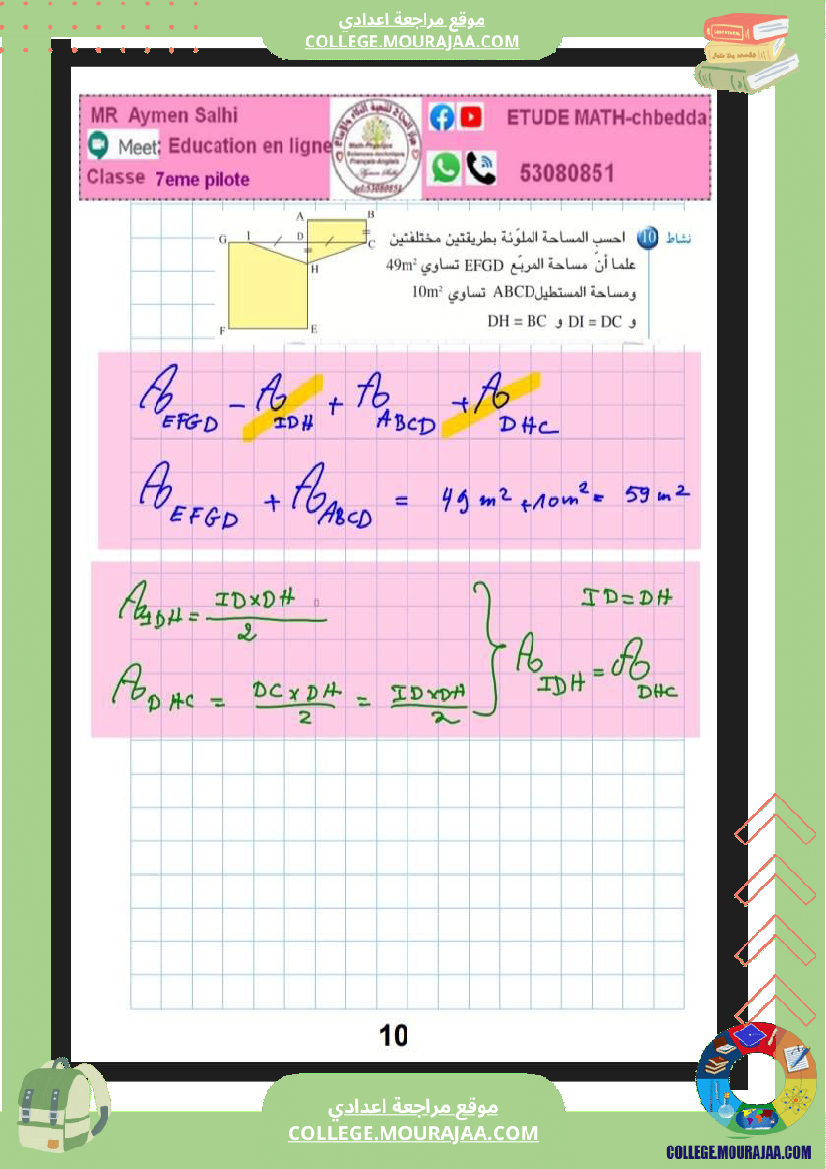 موقع مراجعة اعدادي
COLLEGE.MOURAJAA.COM
MR Aymen Salhi
Meet: Education en ligne
Classe 7eme pilote
ETUDE MATH-chbedda
53080851
A B
G I D C
H
F E
نشاط 10 احسب المساحة الملوّنة بطريقتين مختلفتين
علما أنّ مساحة المربّع EFGD تساوي 49m²
ومساحة المستطيل ABCD تساوي 10m²
و DI = DC و DH = BC
A EFGD - A IDH + A ABCD + A DHC
A EFGD + A ABCD = 49 m² + 10m² = 59 m²
A IDH = ID×DH / 2
ID = DH
A DHC = DC × DH / 2 = ID×DH / 2
A IDH = A DHC
10
موقع مراجعة اعدادي
COLLEGE.MOURAJAA.COM
COLLEGE.MOURAJAA.COM